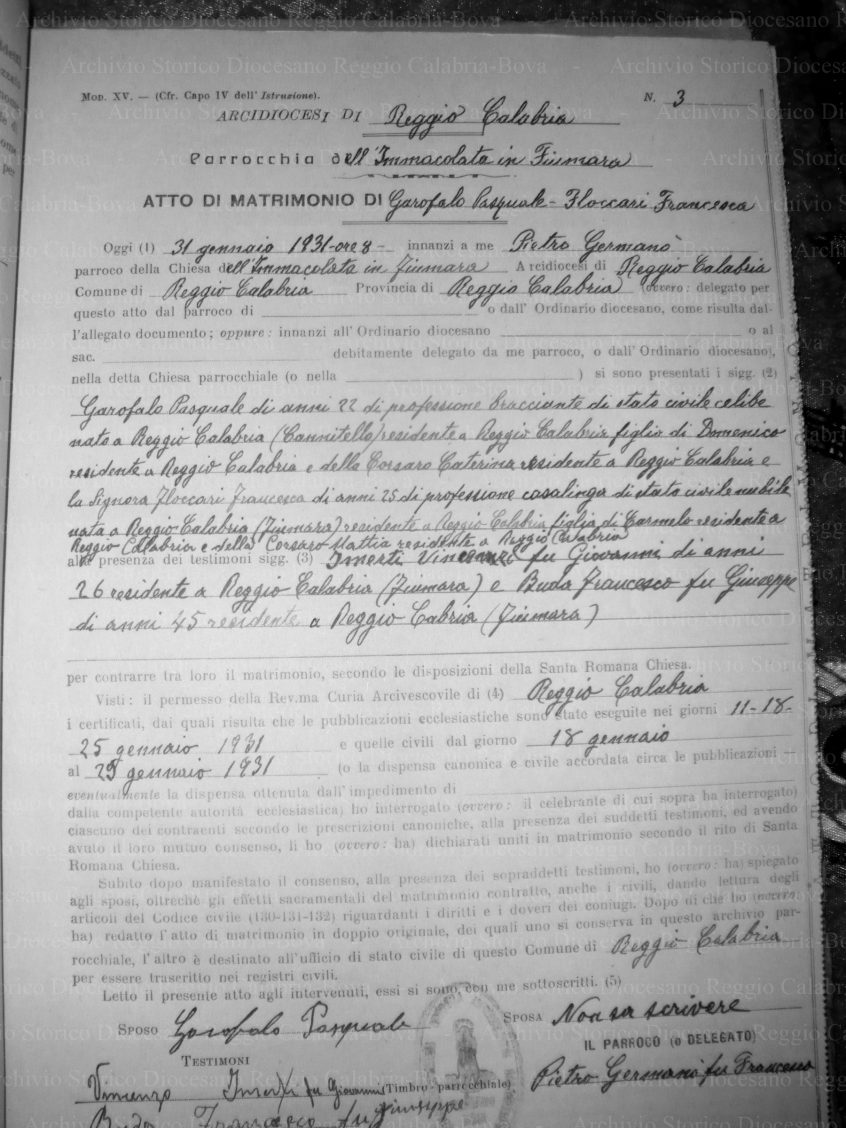 Archivio Storico Diocesano Reggio Calabria-Bova
Mod. XV. — (Cfr. Capo IV dell' Istruzione).
N. 3
ARCIDIOCESI DI Reggio Calabria
Parrocchia dell'Immacolata in Fiumara
ATTO DI MATRIMONIO DI Garofalo Pasquale - Floccari Francesca
Oggi (1) 31 gennaio 1931 - ore 8 - innanzi a me Pietro Germanò
parroco della Chiesa dell'Immacolata in Fiumara Arcidiocesi di Reggio Calabria
Comune di Reggio Calabria Provincia di Reggio Calabria (ovvero: delegato per
questo atto dal parroco di o dall' Ordinario diocesano, come risulta dal-
l'allegato documento; oppure: innanzi all' Ordinario diocesano o al
sac. debitamente delegato da me parroco, o dall' Ordinario diocesano),
nella detta Chiesa parrocchiale (o nella ) si sono presentati i sigg. (2)
Garofalo Pasquale di anni 22 di professione bracciante di stato civile celibe
nato a Reggio Calabria (Cannitello) residente a Reggio Calabria figlio di Domenico
residente a Reggio Calabria e della Corsaro Caterina residente a Reggio Calabria e
la Signora Floccari Francesca di anni 25 di professione casalinga di stato civile nubile
nata a Reggio Calabria (Fiumara) residente a Reggio Calabria figlia di Carmelo residente a
Reggio Calabria e della Corsaro Mattia residente a Reggio Calabria
alla presenza dei testimoni sigg. (3) Imerti Vincenzo fu Giovanni di anni
26 residente a Reggio Calabria (Fiumara) e Buda Francesco fu Giuseppe
di anni 45 residente a Reggio Cabria (Fiumara)
per contrarre tra loro il matrimonio, secondo le disposizioni della Santa Romana Chiesa.
Visti: il permesso della Rev.ma Curia Arcivescovile di (4) Reggio Calabria
i certificati, dai quali risulta che le pubblicazioni ecclesiastiche sono state eseguite nei giorni 11-18-
25 gennaio 1931 e quelle civili dal giorno 18 gennaio
al 29 gennaio 1931 (o la dispensa canonica e civile accordata circa le pubblicazioni
eventualmente la dispensa ottenuta dall'impedimento di
dalla competente autorità ecclesiastica) ho interrogato (ovvero: il celebrante di cui sopra ha interrogato)
ciascuno dei contraenti secondo le prescrizioni canoniche, alla presenza dei suddetti testimoni, ed avendo
avuto il loro mutuo consenso, li ho (ovvero: ha) dichiarati uniti in matrimonio secondo il rito di Santa
Romana Chiesa.
Subito dopo manifestato il consenso, alla presenza dei sopraddetti testimoni, ho (ovvero: ha) spiegato
agli sposi, oltrechè gli effetti sacramentali del matrimonio contratto, anche i civili, dando lettura degli
articoli del Codice civile (130-131-132) riguardanti i diritti e i doveri dei coniugi. Dopo di che ho (ovvero:
ha) redatto l'atto di matrimonio in doppio originale, dei quali uno si conserva in questo archivio par-
rocchiale, l'altro è destinato all'ufficio di stato civile di questo Comune di Reggio Calabria
per essere trascritto nei registri civili.
Letto il presente atto agli intervenuti, essi si sono con me sottoscritti. (5)
SPOSO Garofalo Pasquale SPOSA Non sa scrivere
TESTIMONI IL PARROCO (o DELEGATO)
Vincenzo Imerti fu Giovanni (Timbro parrocchiale) Pietro Germanò fu Francesco
Buda Francesco fu Giuseppe